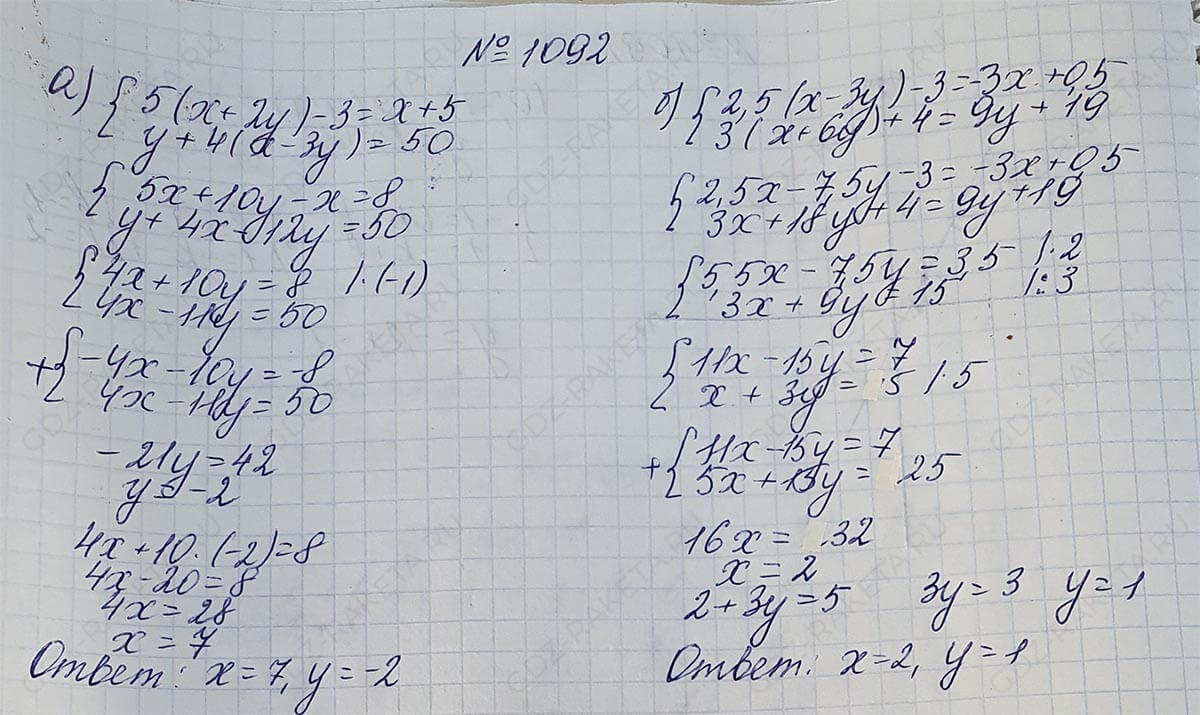 № 1092
а) { 5(x+2y)-3=x+5
y+4(x-3y)=50
{ 5x+10y-x=8
y+4x-12y=50
{ 4x+10y=8 |·(-1)
4x-11y=50
+{ -4x-10y=-8
4x-11y=50
-21y=42
y=-2
4x+10·(-2)=8
4x-20=8
4x=28
x=7
Ответ: x=7, y=-2
б) { 2,5(x-3y)-3=-3x+0,5
3(x+6y)+4=9y+19
{ 2,5x-7,5y-3=-3x+0,5
3x+18y+4=9y+19
{ 5,5x-7,5y=3,5 |·2
3x+9y=15 |:3
{ 11x-15y=7
x+3y=5 |·5
+{ 11x-15y=7
5x+15y=25
16x=32
x=2
2+3y=5 3y=3 y=1
Ответ: x=2, y=1
GDZ-RAKETA.RU